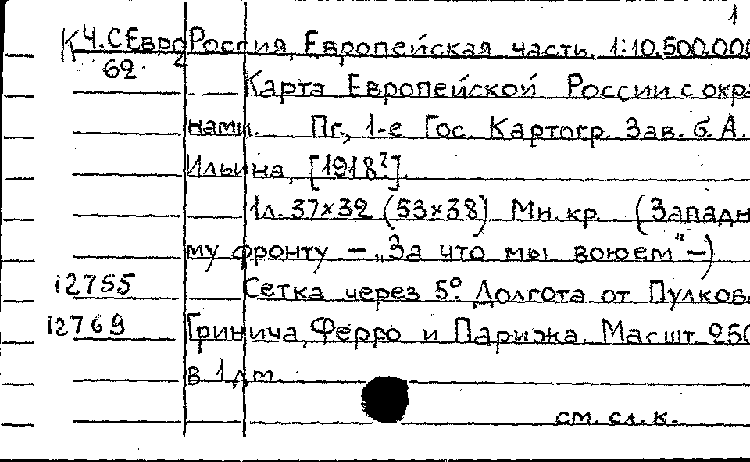 1
К Ч.С Евро Россия, Европейская часть. 1:10.500.000
62. Карта Европейской России с окра
нами. Пг., 1-е Гос. Картогр. Зав. б. А.
Ильина, [1918?].
1л. 37×32 (53×38) Мн. кр. (Западн
му фронту – „За что мы воюем" –)
12755 Сетка через 5°. Долгота от Пулков.
12769 Гринича, Ферро и Парижа. Масшт. 250
в 1 дм.
см. сл. к.